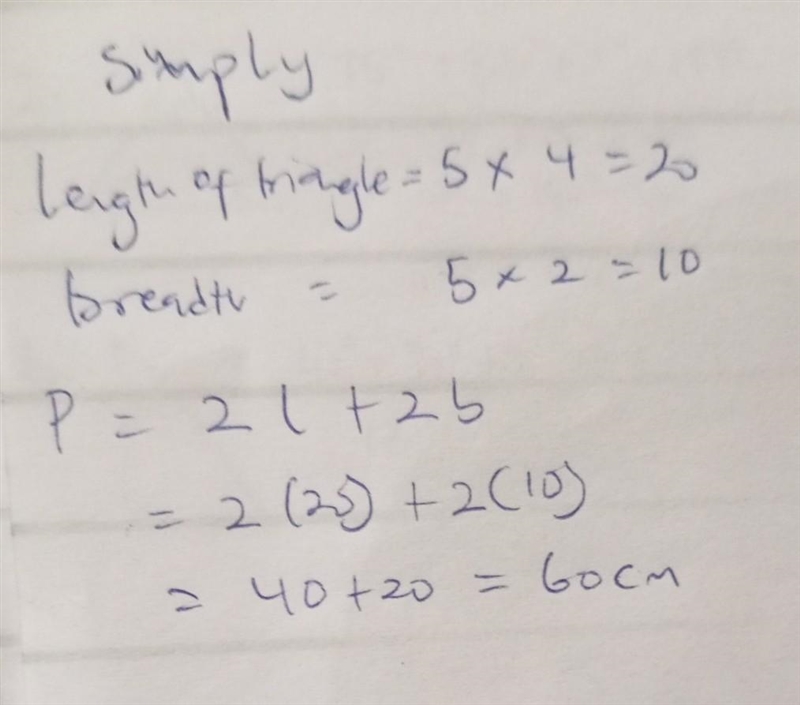 Simply
length of triangle = 5 × 4 = 20
breadth = 5 × 2 = 10
P = 2l + 2b
= 2(20) + 2(10)
= 40 + 20 = 60cm